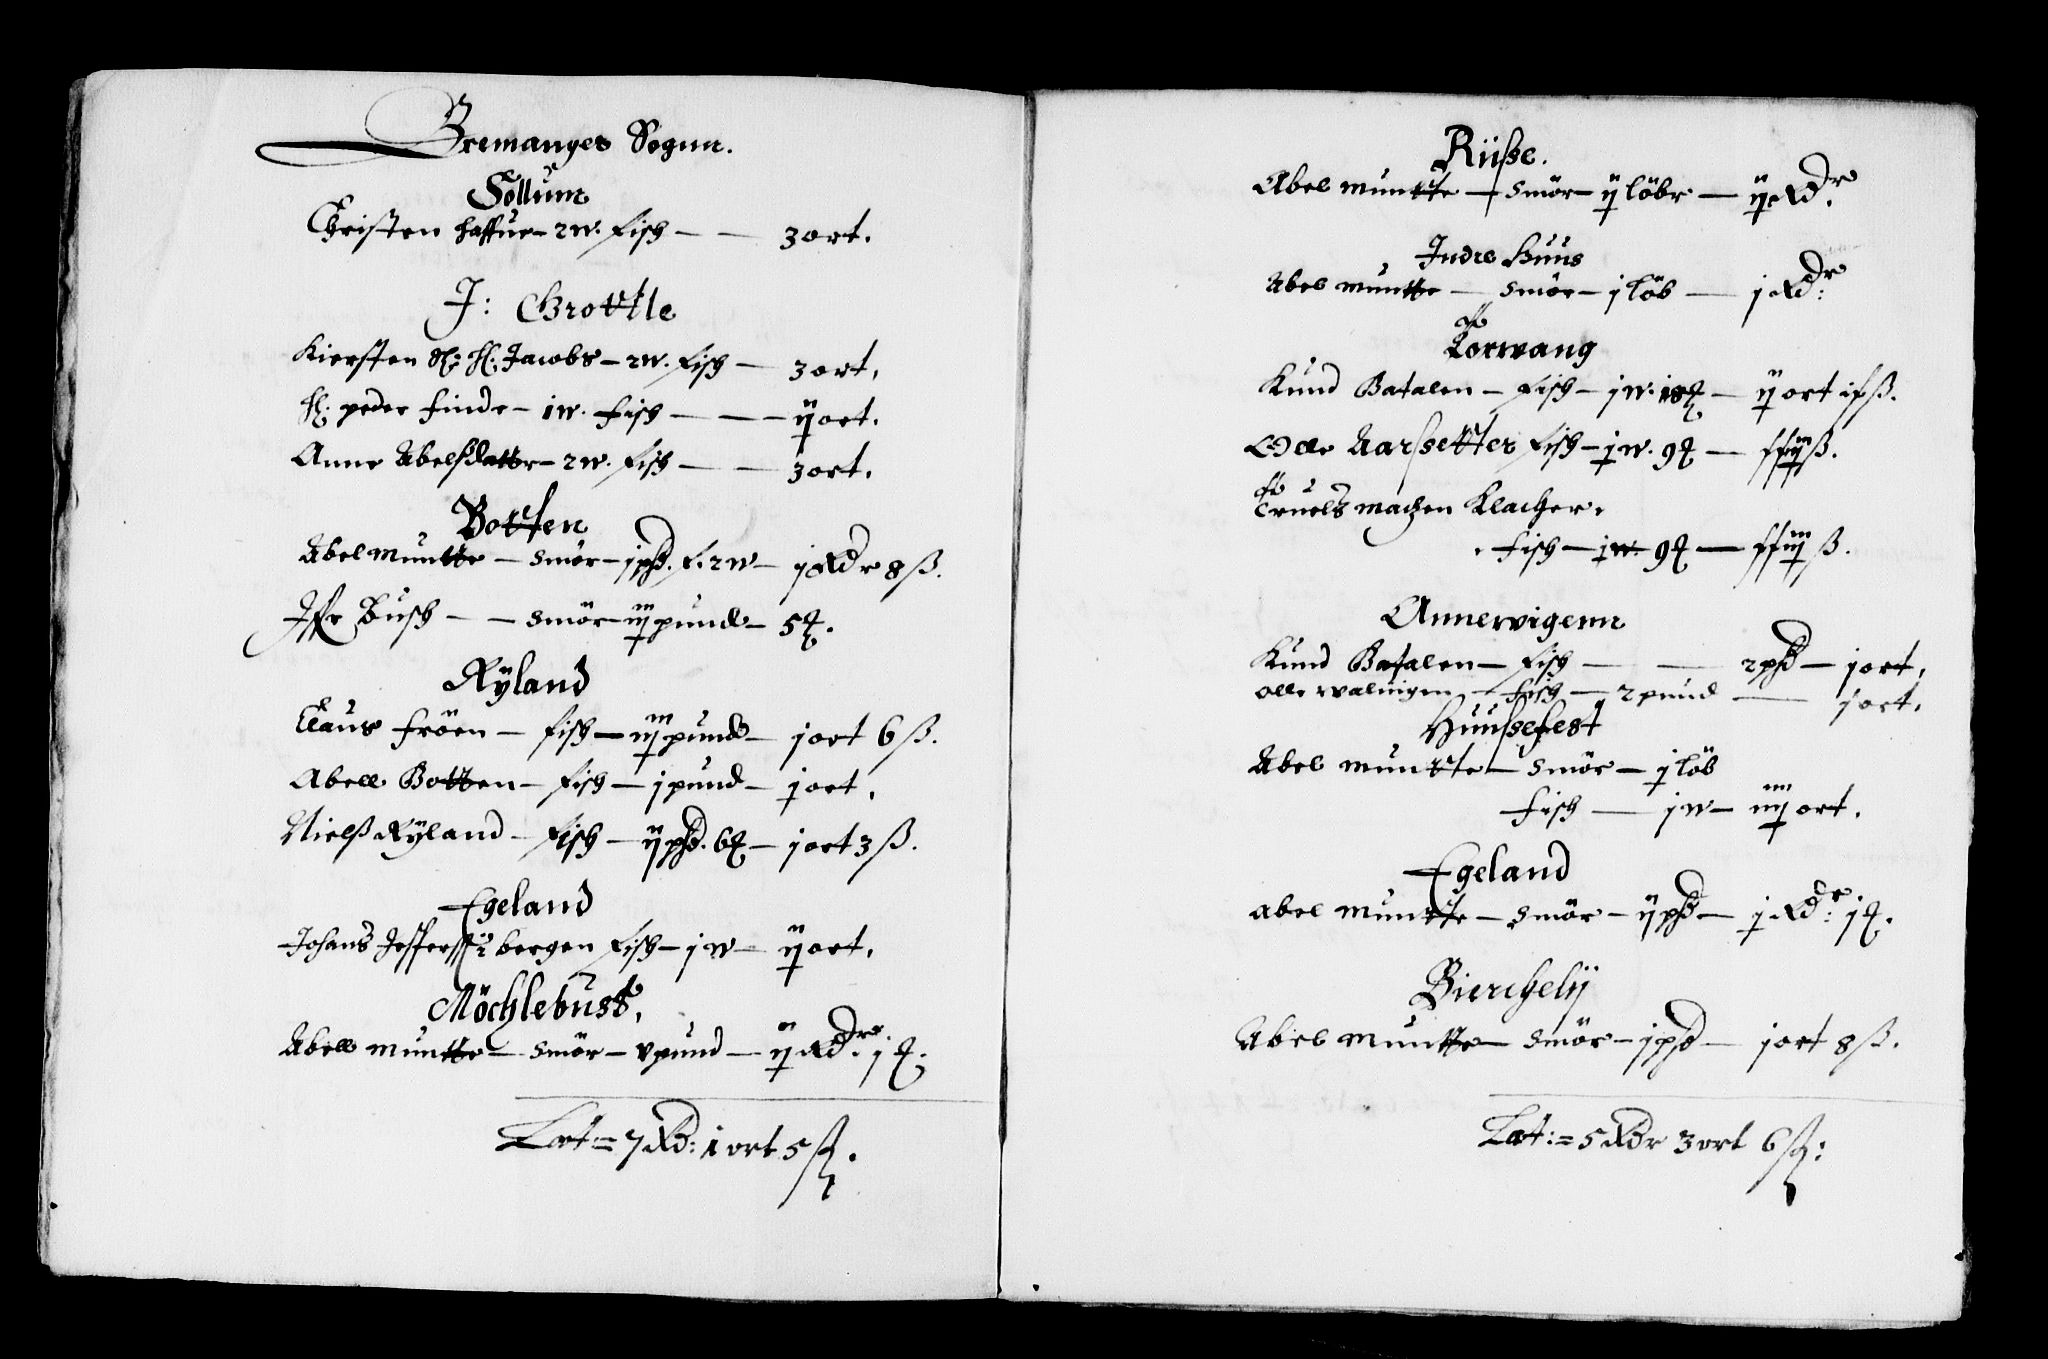 Bremanges Sognn.
Søllum
Christen haffue - 2 w. fisch - - 3 ort.
J: Grottle
Kiersten Sl: H. Jacobs - 2 w. fisch - 3 ort.
H. peder finde - 1 w. fisch - - ij ort.
Anne Abelsdatter - 2 w. fisch - - 3 ort.
Botten
Abel muntte - smör - j pd. f. 2 w - j Rdr 8 ß.
Iffr Busch - - smör - iij pund - 5 ꝶ.
Rÿland
Claus fröen - fisch - iij pund - j ort 6 ß.
Abell Botten - fisch - j pund - j ort.
Nielß Rÿland - fisch - ij pd. 6 ꝶ - j ort 3 ß.
Egeland
Johans Jesperss bergen fisch - j w - ij ort.
Möchlebust.
Abell muntte - smör - v pund - ij Rdr. j ꝶ.
Lat = 7 Rd: 1 ort 5 ß.
Rüsse.
Abel muntte - smör - ij löbr - ij Rdr.
Indre Huus
Abel muntte - smör - j löb - j Rdr:
Lorwang
Kund Batalen - fisch - j w. 18 ꝶ - ij ort 1 ß.
Olle Aarsetter fisch - j w. 9 ꝶ - ß.
Truels machen Klacher.
fisch - j w 9 ꝶ - ß.
Annewigenn
Kund Batalen - fisch - - 2 pd - j ort.
olle walwigen - fisch - 2 pund - j ort.
Huussefest
Abel muntte - smör - j löb
fisch - j w - iiij ort.
Egeland
abel muntte - smör - ij pd - j Rdr: j ꝶ.
Bierchelij
Abel muntte - smör - j pd - j ort 8 ß.
Lat: = 5 Rdr 3 ort 6 ß: